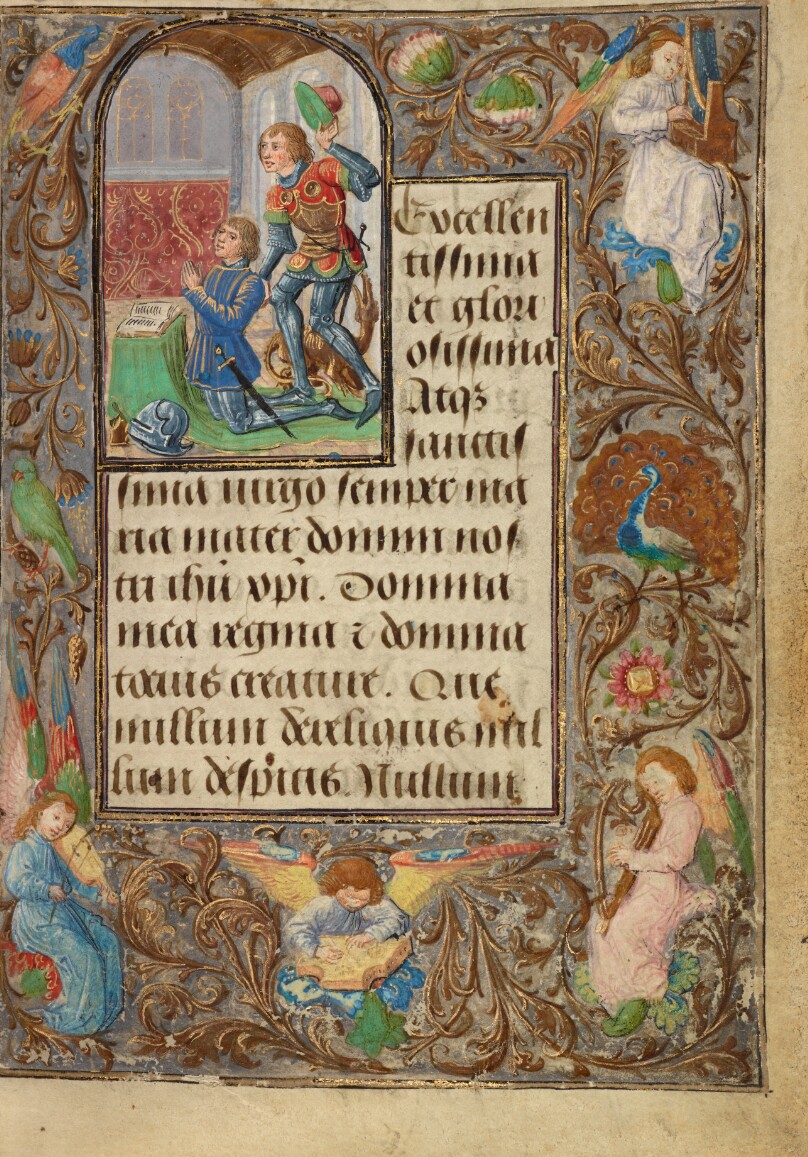 Excellen
tissima
et glori
osissima
Atqꝫ
sanctis
sima uirgo semper ma
ria mater domini nos
tri ihũ xpi. Domina
mea regina ⁊ domina
tocius creature. Que
nullum derelinquis nul
lum despicis. Nullum